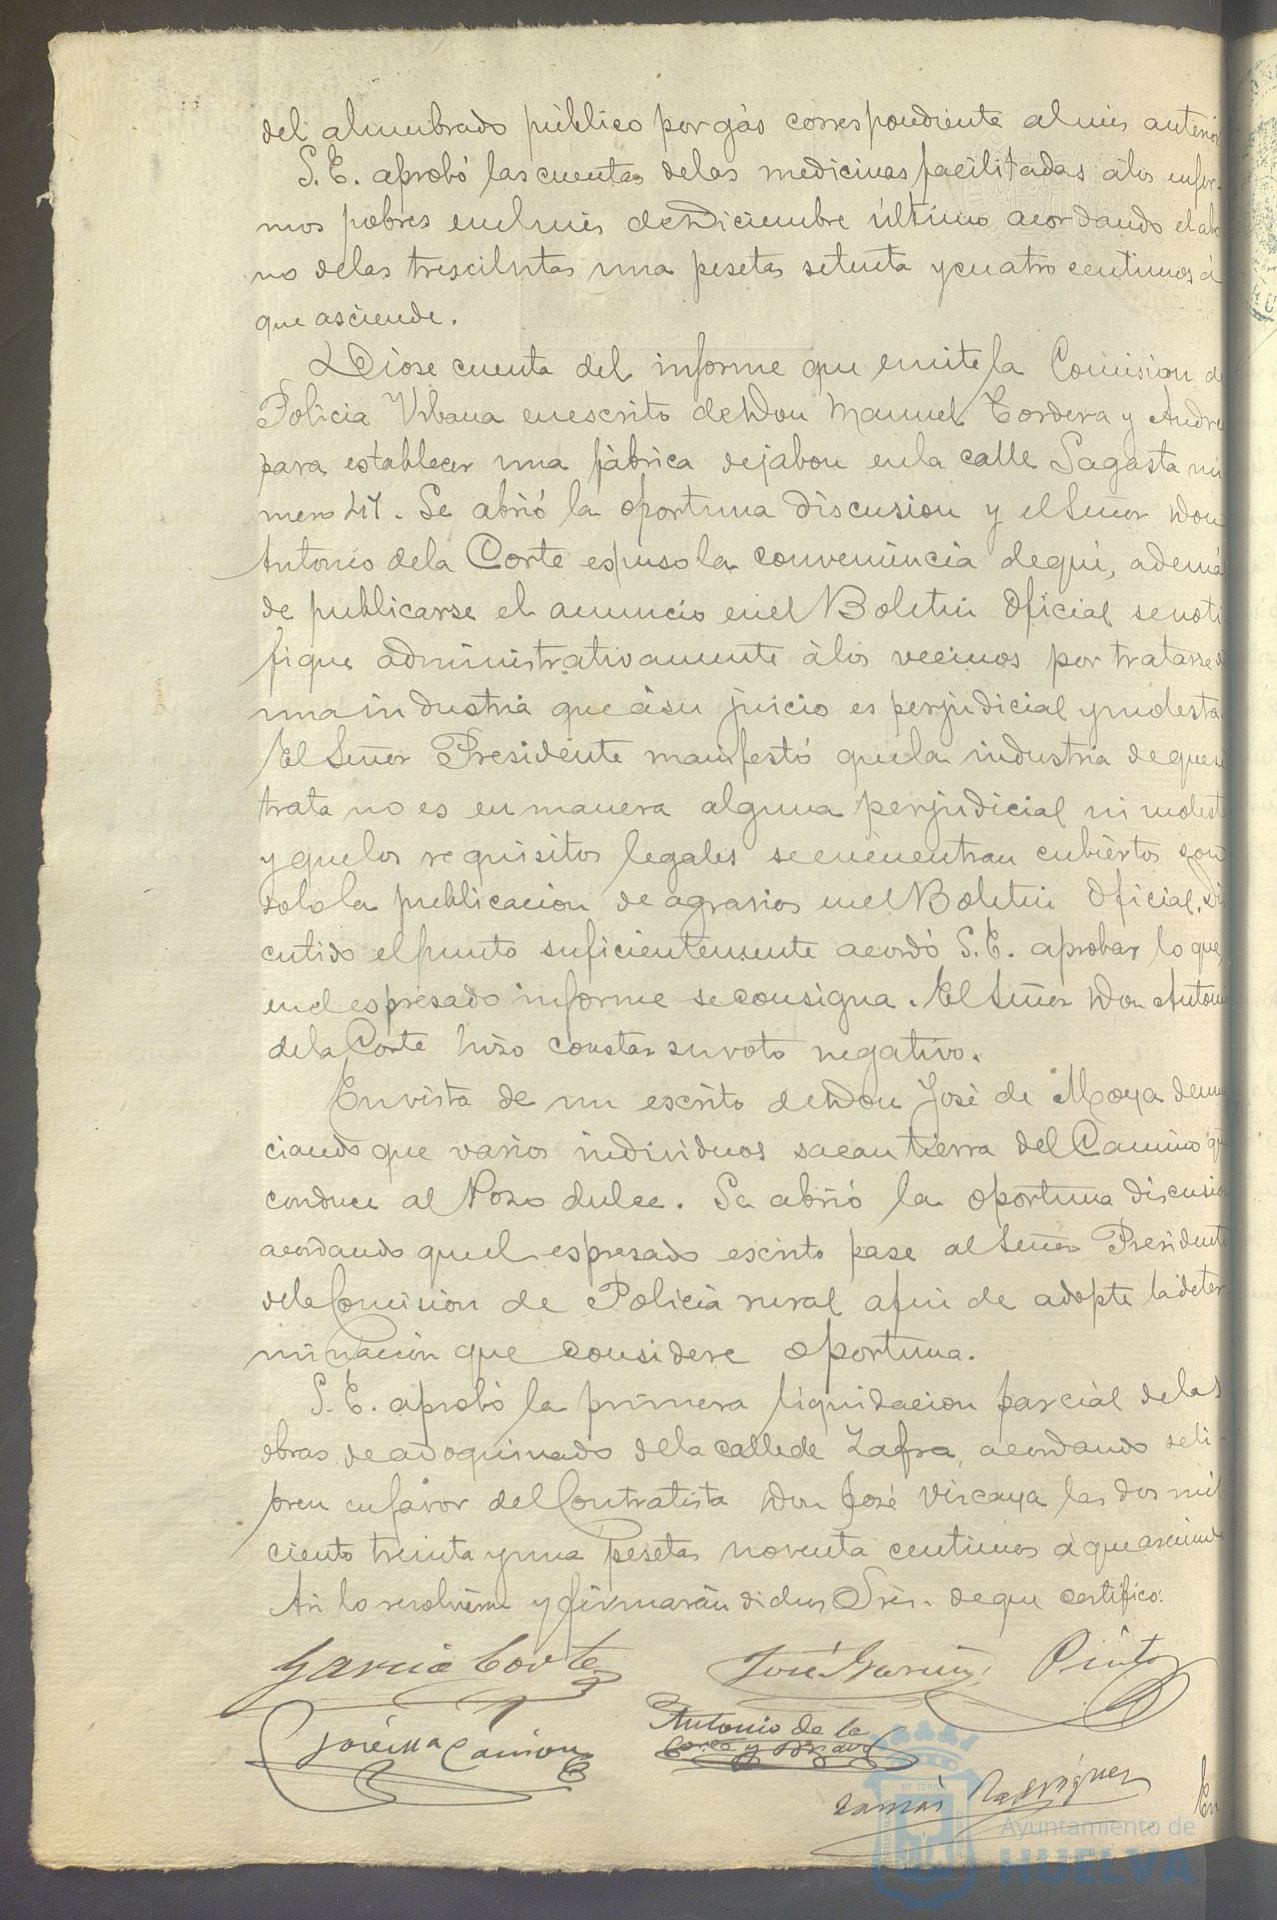 del alumbrado público por gás correspondiente al mes anterior
S. E. aprobó las cuentas de las medicinas facilitadas á los enfer-
mos pobres en el mes de Diciembre último acordando el abo
no de las trescientas una pesetas setenta y cuatro centimos á
que asciende.
Dióse cuenta del informe que emite la Comision de
Policia Urbana en escrito de Don Manuel Cordera y Andre
para establecer una fábrica de jabon en la calle Sagasta nú
mero 47. Se abrió la oportuna discusion y el Señor Don
Antonio de la Corte espuso la conveniencia de que, ademá
de publicarse el anuncio en el Boletin Oficial se noti
fique administrativamente á los vecinos por tratarse de
una industria que á su juicio es perjudicial y molesta.
El Señor Presidente manifestó que la industria de que se
trata no es en manera alguna perjudicial ni molest
y que los requisitos legales se encuentran cubiertos con
solo la publicacion de agravios en el Boletin Oficial. Dis
cutido el punto suficientemente acordó S. E. aprobar lo que
en el espresado informe se consigna. El Señor Don Antoni
de la Corte hizo constar su voto negativo.
En vista de un escrito de Don José de Moya denun
ciando que varios individuos sacan tierra del Camino que
conduce al Pozo dulce. Se abrió la oportuna discusion
acordando que el espresado escrito pase al Señor Presidente
de la Comision de Policia rural a fin de adopte la deter
minacion que considere oportuna.
S. E. aprobó la primera liquidacion parcial de las
obras de adoquinado de la calle de Zafra, acordando se li-
bren en favor del Contratista Don José Vizcaya las dos mil
ciento treinta y una pesetas noventa centimos á que asciende
Asi lo resolvieron y firmarán dichos Sres. de que certifico.
Garcia Corte José Garcia Pinto
José Mª Antonio de la
Corte y Bravo
Tomás Rodriguez En
Ayuntamiento de
HUELVA